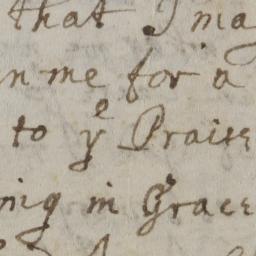 that I ma
n me for a
to yᵉ Praise
ing in Grace